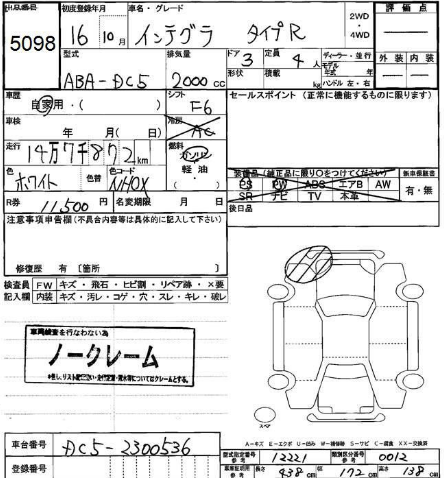 出品番号 初度登録年月 車名・グレード 2WD 評価点
5098 16年 10月 インテグラ タイプR ・
4WD
型式 排気量 ドア 定員 ディーラー・並行 外装 内装
ABA-DC5 2000cc 3 4人 モデル 年式 年
形状 積載 kg ハンドル 左・右
車歴 自家用・( ) シフト F6 セールスポイント (正常に機能するものに限ります)
車検 年 月( )日 冷房 AC
走行 14万7千872km 燃料 ガソリン
軽油
・( )
色 ホワイト 色替 色コード NH0X 装備品(純正品に限り○をつけてください) 新車保証書
PS PW ABS エアB AW 有・無
R券 11,500円 名変期限 月 日 SR ナビ TV 本革
注意事項申告欄(不具合内容等は具体的に記入して下さい) 後日品
修復歴 有 〔箇所 〕
検査員 FW キズ・飛石・ヒビ割・リペア跡・×要
記入欄 内装 キズ・汚レ・コゲ・穴・スレ・キレ・破レ
車両検査を行なわない為
ノークレーム
スペア
車台番号 DC5-2300536
A-キズ E-エクボ U-凹み W-補修跡 S-サビ C-腐食 XX-交換済
型式指定番号 参考 12221 類別区分番号 参考 0012
登録番号 長さ 438cm 幅 172cm 高さ 138cm